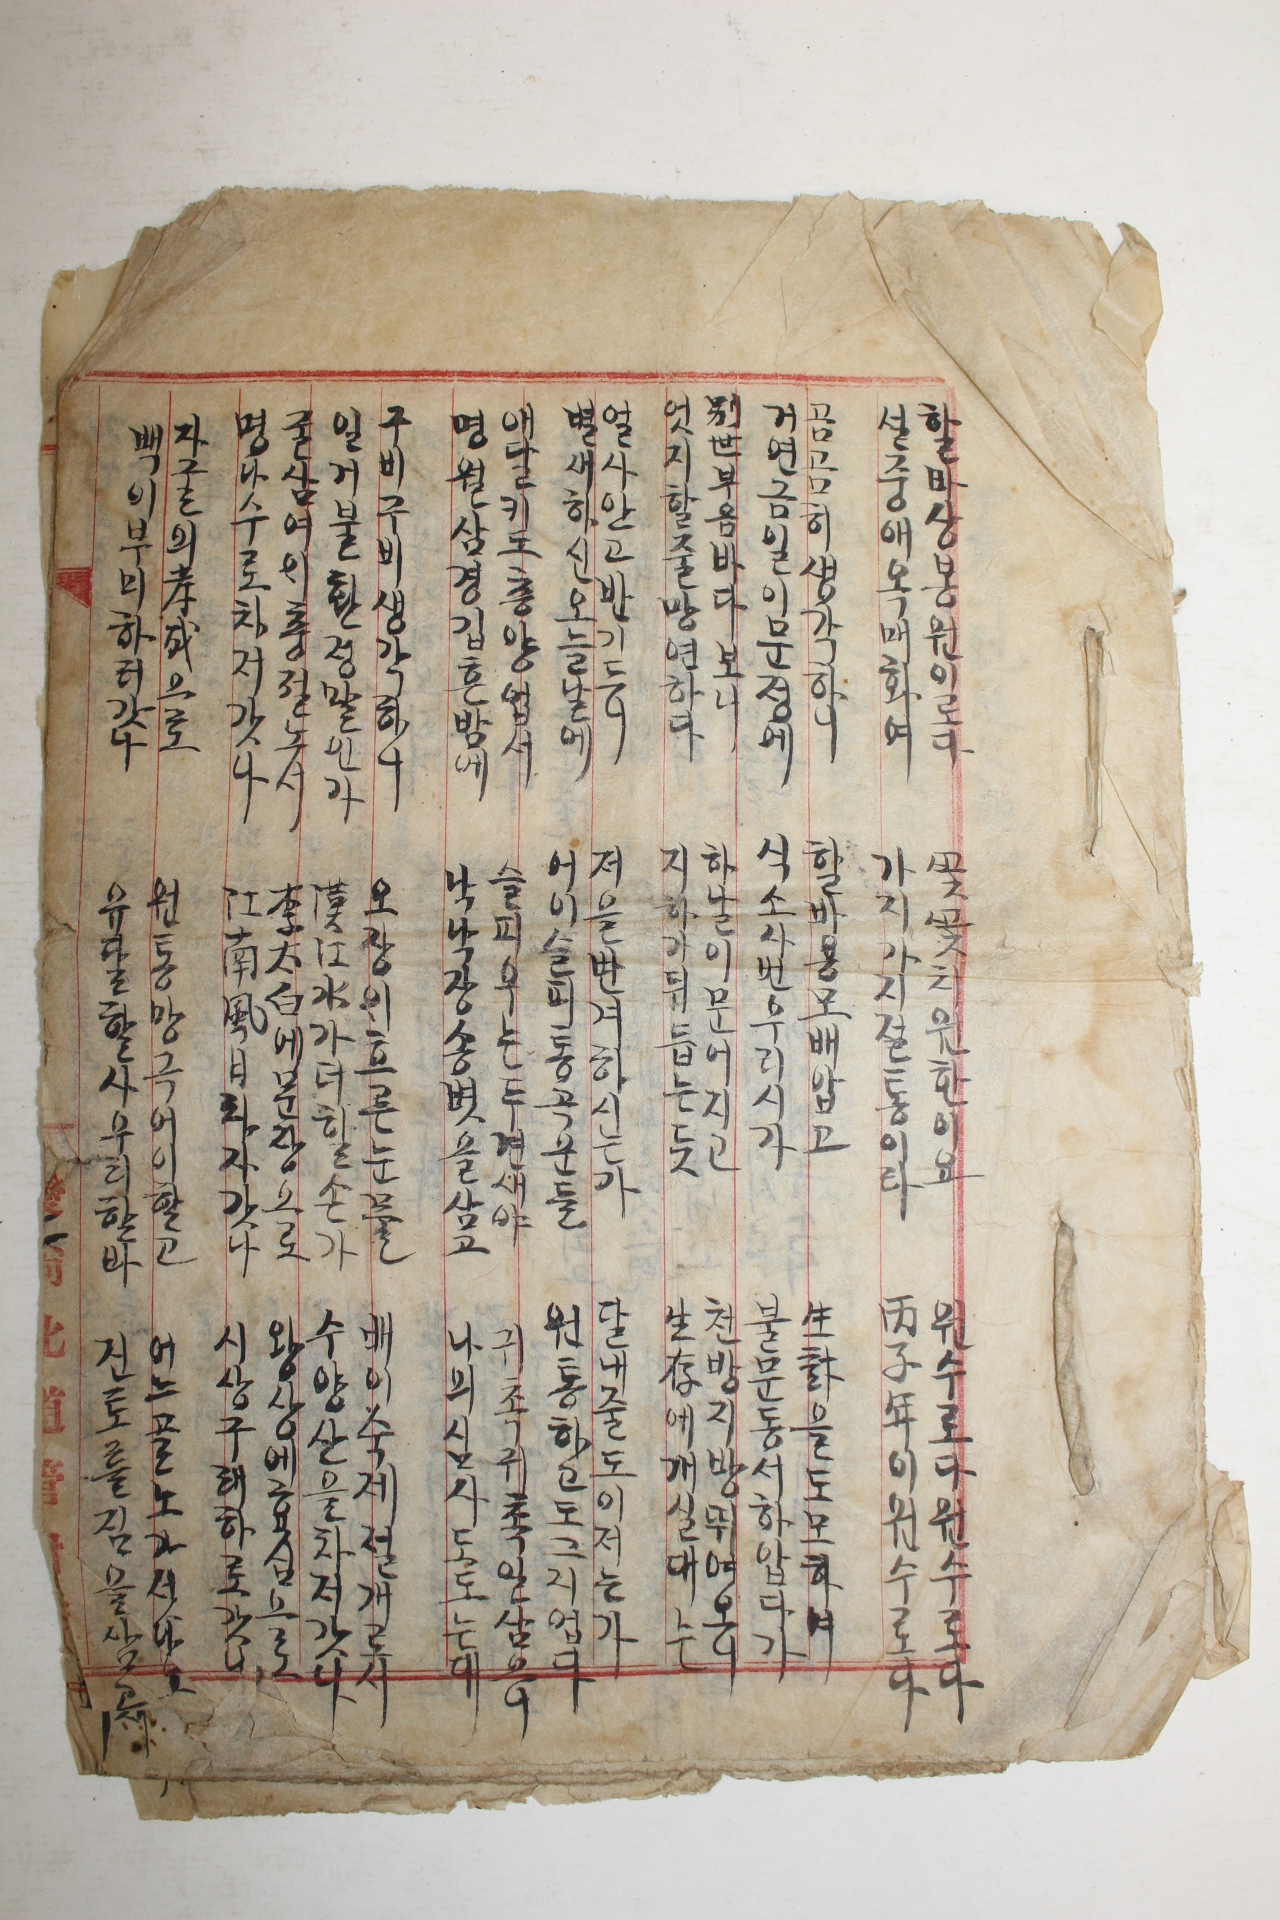 할바상봉원이로다 哭哭치원한이요 원수로다원수로다
설중애옥매화여 가지가지절통이라 丙子年이원수로다
곰곰히生각하니 할바용모배압고 生計을도모하녀
거연금일임문정에 식소사번우리시가 불문동서하압다가
別世부음바다보니 하날이문어지고 천방지방뛰여온니
엇지할줄망연하다 지하가뒤듭는듯 生存에개실대는
얼사안고반기드니 저을반겨하시는가 달내줄도이저는가
별새하신오늘날에 어이슬피통곡문들 원통하고도그지업다
애달키도충양업서 슬피우는두견새야 귀촉귀촉일삼으니
명월삼경깁흔밤에 낙낙장송벗을삼고 나의심사도도는대
구비구비생각하니 오장의흐른눈물 배이숙제절개로서
일거불환정말인가 漢江水가더할손가 수양산을차저갓나
굴삼여의충절노서 李太白에문장으로 왕상에효심으로
명나수로차저갓나 江南風月차자갓나 시상구해하로갓나
자굴의孝成으로 원통망극어이할고 어느골노가섯난고
백이부미하려갓나 유달할사우리할바 진토를집을삼고